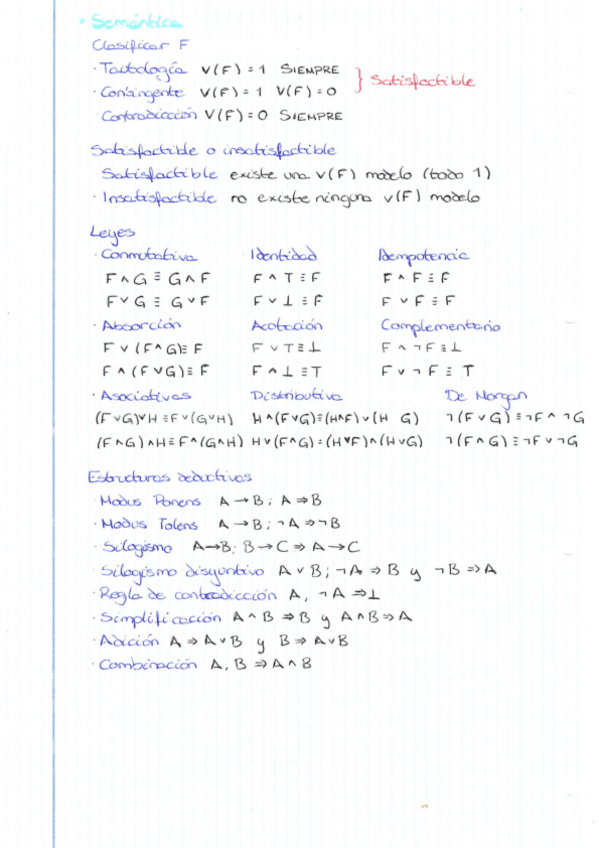 · Semántica
Clasificar F
· Tautología V(F) = 1 SIEMPRE
· Contingente V(F) = 1 V(F) = 0
} Satisfactible
· Contradicción V(F) = 0 SIEMPRE
Satisfactible o insatisfactible
Satisfactible existe una V(F) modelo (todo 1)
· Insatisfactible no existe ninguna V(F) modelo
Leyes
· Conmutativa · Identidad Idempotencia
F ∧ G ≡ G ∧ F F ∧ T ≡ F F ∧ F ≡ F
F ∨ G ≡ G ∨ F F ∨ ⊥ ≡ F F ∨ F ≡ F
· Absorción Acotación Complementario
F ∨ (F ∧ G) ≡ F F ∨ T ≡ ⊥ F ∧ ¬F ≡ ⊥
F ∧ (F ∨ G) ≡ F F ∧ ⊥ ≡ T F ∨ ¬F ≡ T
· Asociativas Distributiva De Morgan
(F ∨ G) ∨ H ≡ F ∨ (G ∨ H) H ∧ (F ∨ G) ≡ (H ∧ F) ∨ (H G) ¬(F ∨ G) ≡ ¬F ∧ ¬G
(F ∧ G) ∧ H ≡ F ∧ (G ∧ H) H ∨ (F ∧ G) = (H ∨ F) ∧ (H ∨ G) ¬(F ∧ G) ≡ ¬F ∨ ¬G
Estructuras deductivas
· Modus Ponens A → B; A ⇒ B
· Modus Tolens A → B; ¬A ⇒ ¬B
· Silogismo A → B; B → C ⇒ A → C
· Silogismo disyuntivo A ∨ B; ¬A ⇒ B y ¬B ⇒ A
· Regla de contradicción A, ¬A ⇒ ⊥
· Simplificación A ∧ B ⇒ B y A ∧ B ⇒ A
· Adición A ⇒ A ∨ B y B ⇒ A ∨ B
· Combinación A, B ⇒ A ∧ B